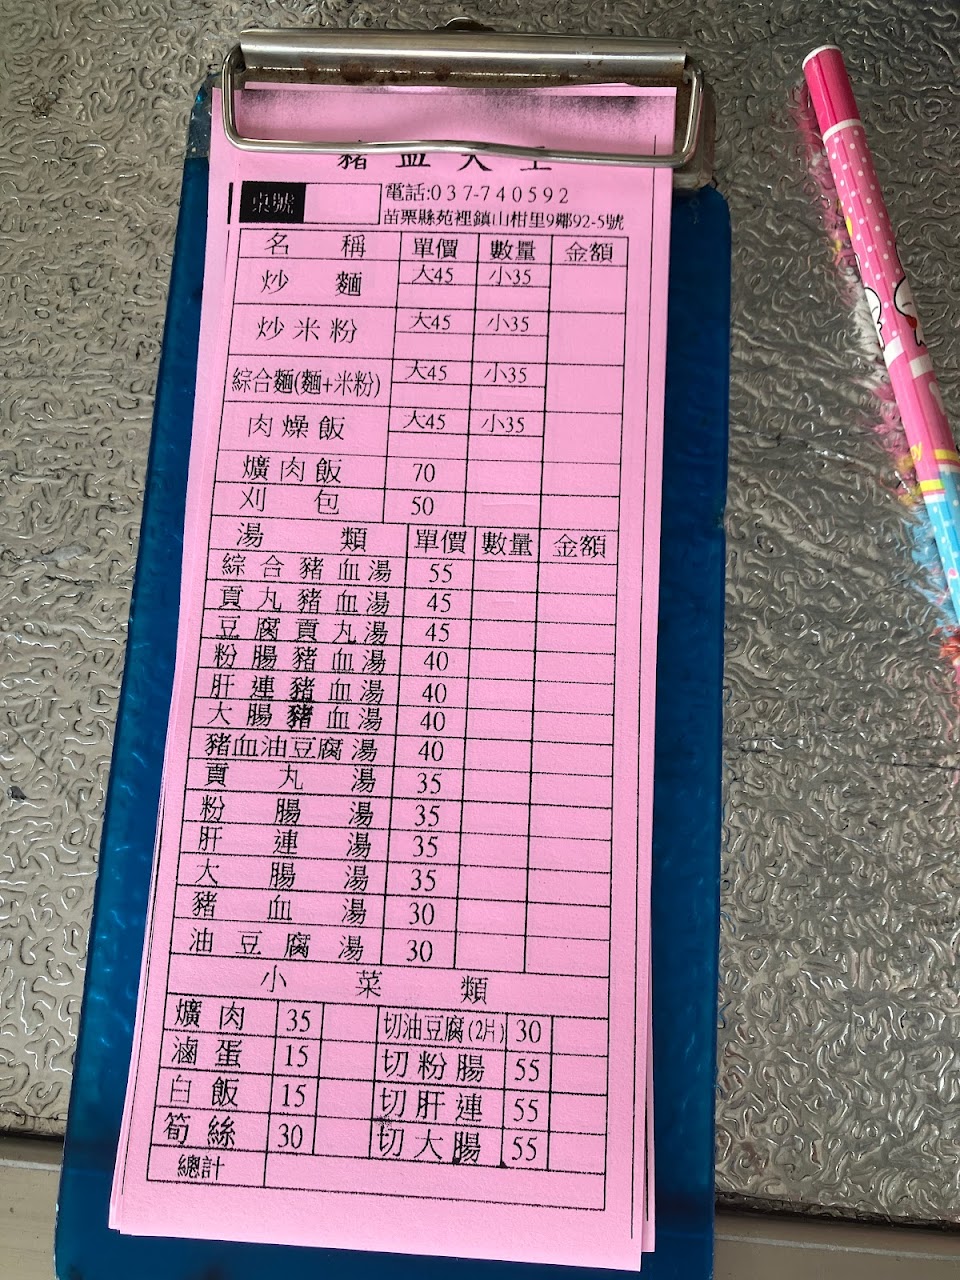 豬血大王
桌號
電話:037-740592
苗栗縣苑裡鎮山柑里9鄰92-5號
名稱 單價 數量 金額
炒麵 大45 小35
炒米粉 大45 小35
綜合麵(麵+米粉) 大45 小35
肉燥飯 大45 小35
爌肉飯 70
刈包 50
湯類 單價 數量 金額
綜合豬血湯 55
貢丸豬血湯 45
豆腐貢丸湯 45
粉腸豬血湯 40
肝連豬血湯 40
大腸豬血湯 40
豬血油豆腐湯 40
貢丸湯 35
粉腸湯 35
肝連湯 35
大腸湯 35
豬血湯 30
油豆腐湯 30
小菜類
爌肉 35 切油豆腐(2片) 30
滷蛋 15 切粉腸 55
白飯 15 切肝連 55
筍絲 30 切大腸 55
總計